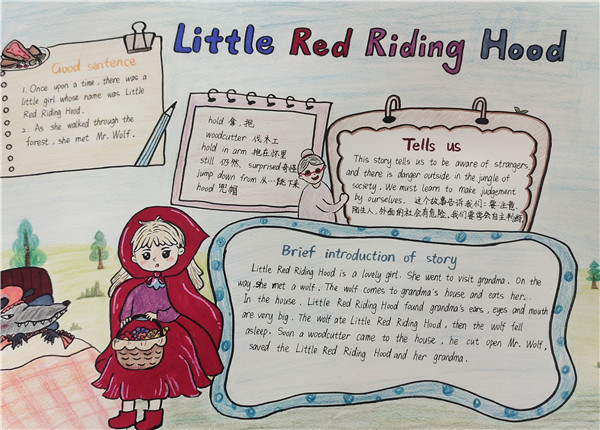 Little Red Riding Hood
Good sentence
1. Once upon a time, there was a
little girl whose name was Little
Red Riding Hood.
2. As she walked through the
forest, she met Mr. Wolf.
hold 拿,抱
woodcutter 伐木工
hold in arm 抱在怀里
still 仍然, surprised 奇怪
jump down from 从…跳下来
hood 兜帽
Tells us
This story tells us to be aware of strangers,
and there is danger outside in the jungle of
society. We must learn to make judgement
by ourselves. 这个故事告诉我们:要注意
陌生人,外面的社会有危险,我们要学会自主判断
Brief introduction of story
Little Red Riding Hood is a lovely girl. She went to visit grandma. On the
way, she met a wolf. The wolf comes to grandma's house and eats her...
In the house, Little Red Riding Hood found grandma's ears, eyes and mouth
are very big. The wolf ate Little Red Riding Hood, then the wolf fell
asleep. Soon a woodcutter came to the house, he cut open Mr. Wolf,
saved the Little Red Riding Hood and her grandma.